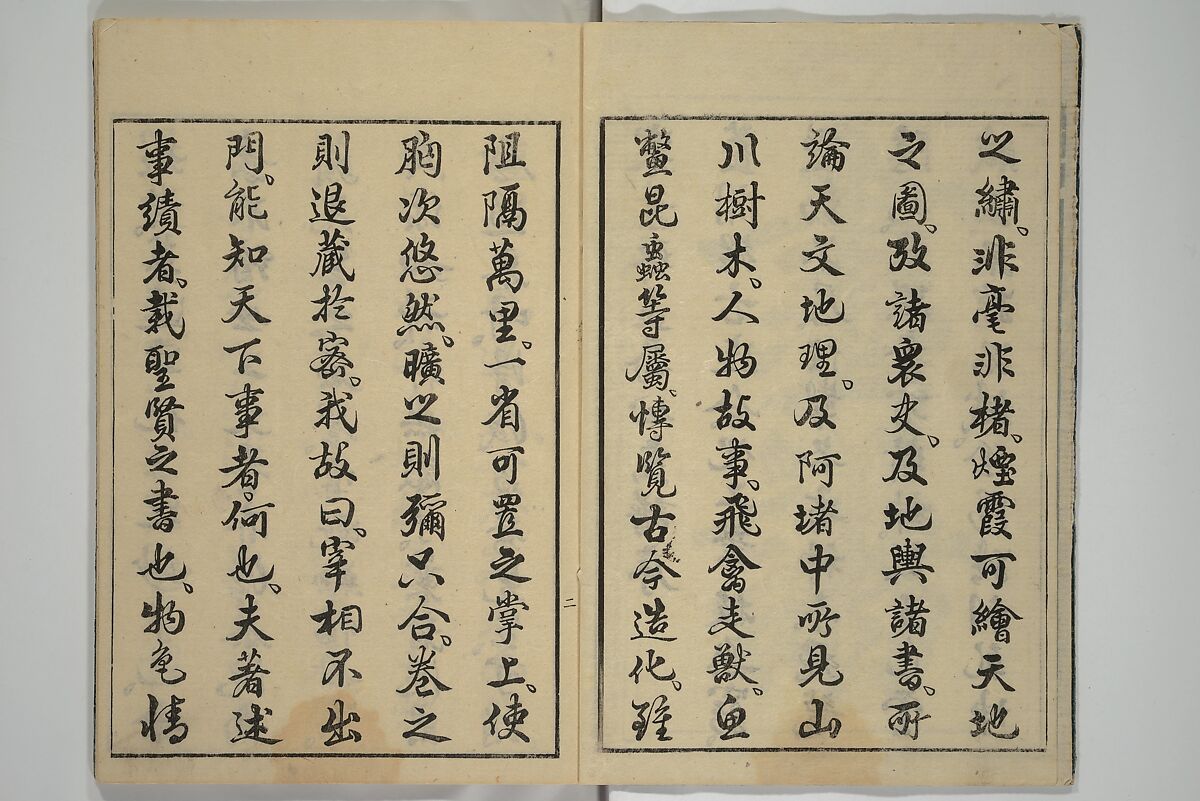 之繡。非毫非楮。煙霞可繪天地
之圖。攷諸衆史。及地輿諸書。所
論天文地理。及阿堵中所見山
川樹木。人物故事。飛禽走獸。魚
鼈昆蟲等屬。博覽古今造化。雖
二
阻隔萬里。一省可置之掌上。使
胸次悠然。曠之則彌六合。卷之
則退藏於密。我故曰。宰相不出
門。能知天下事者。何也。夫著述
事績者。載聖賢之書也。物色情